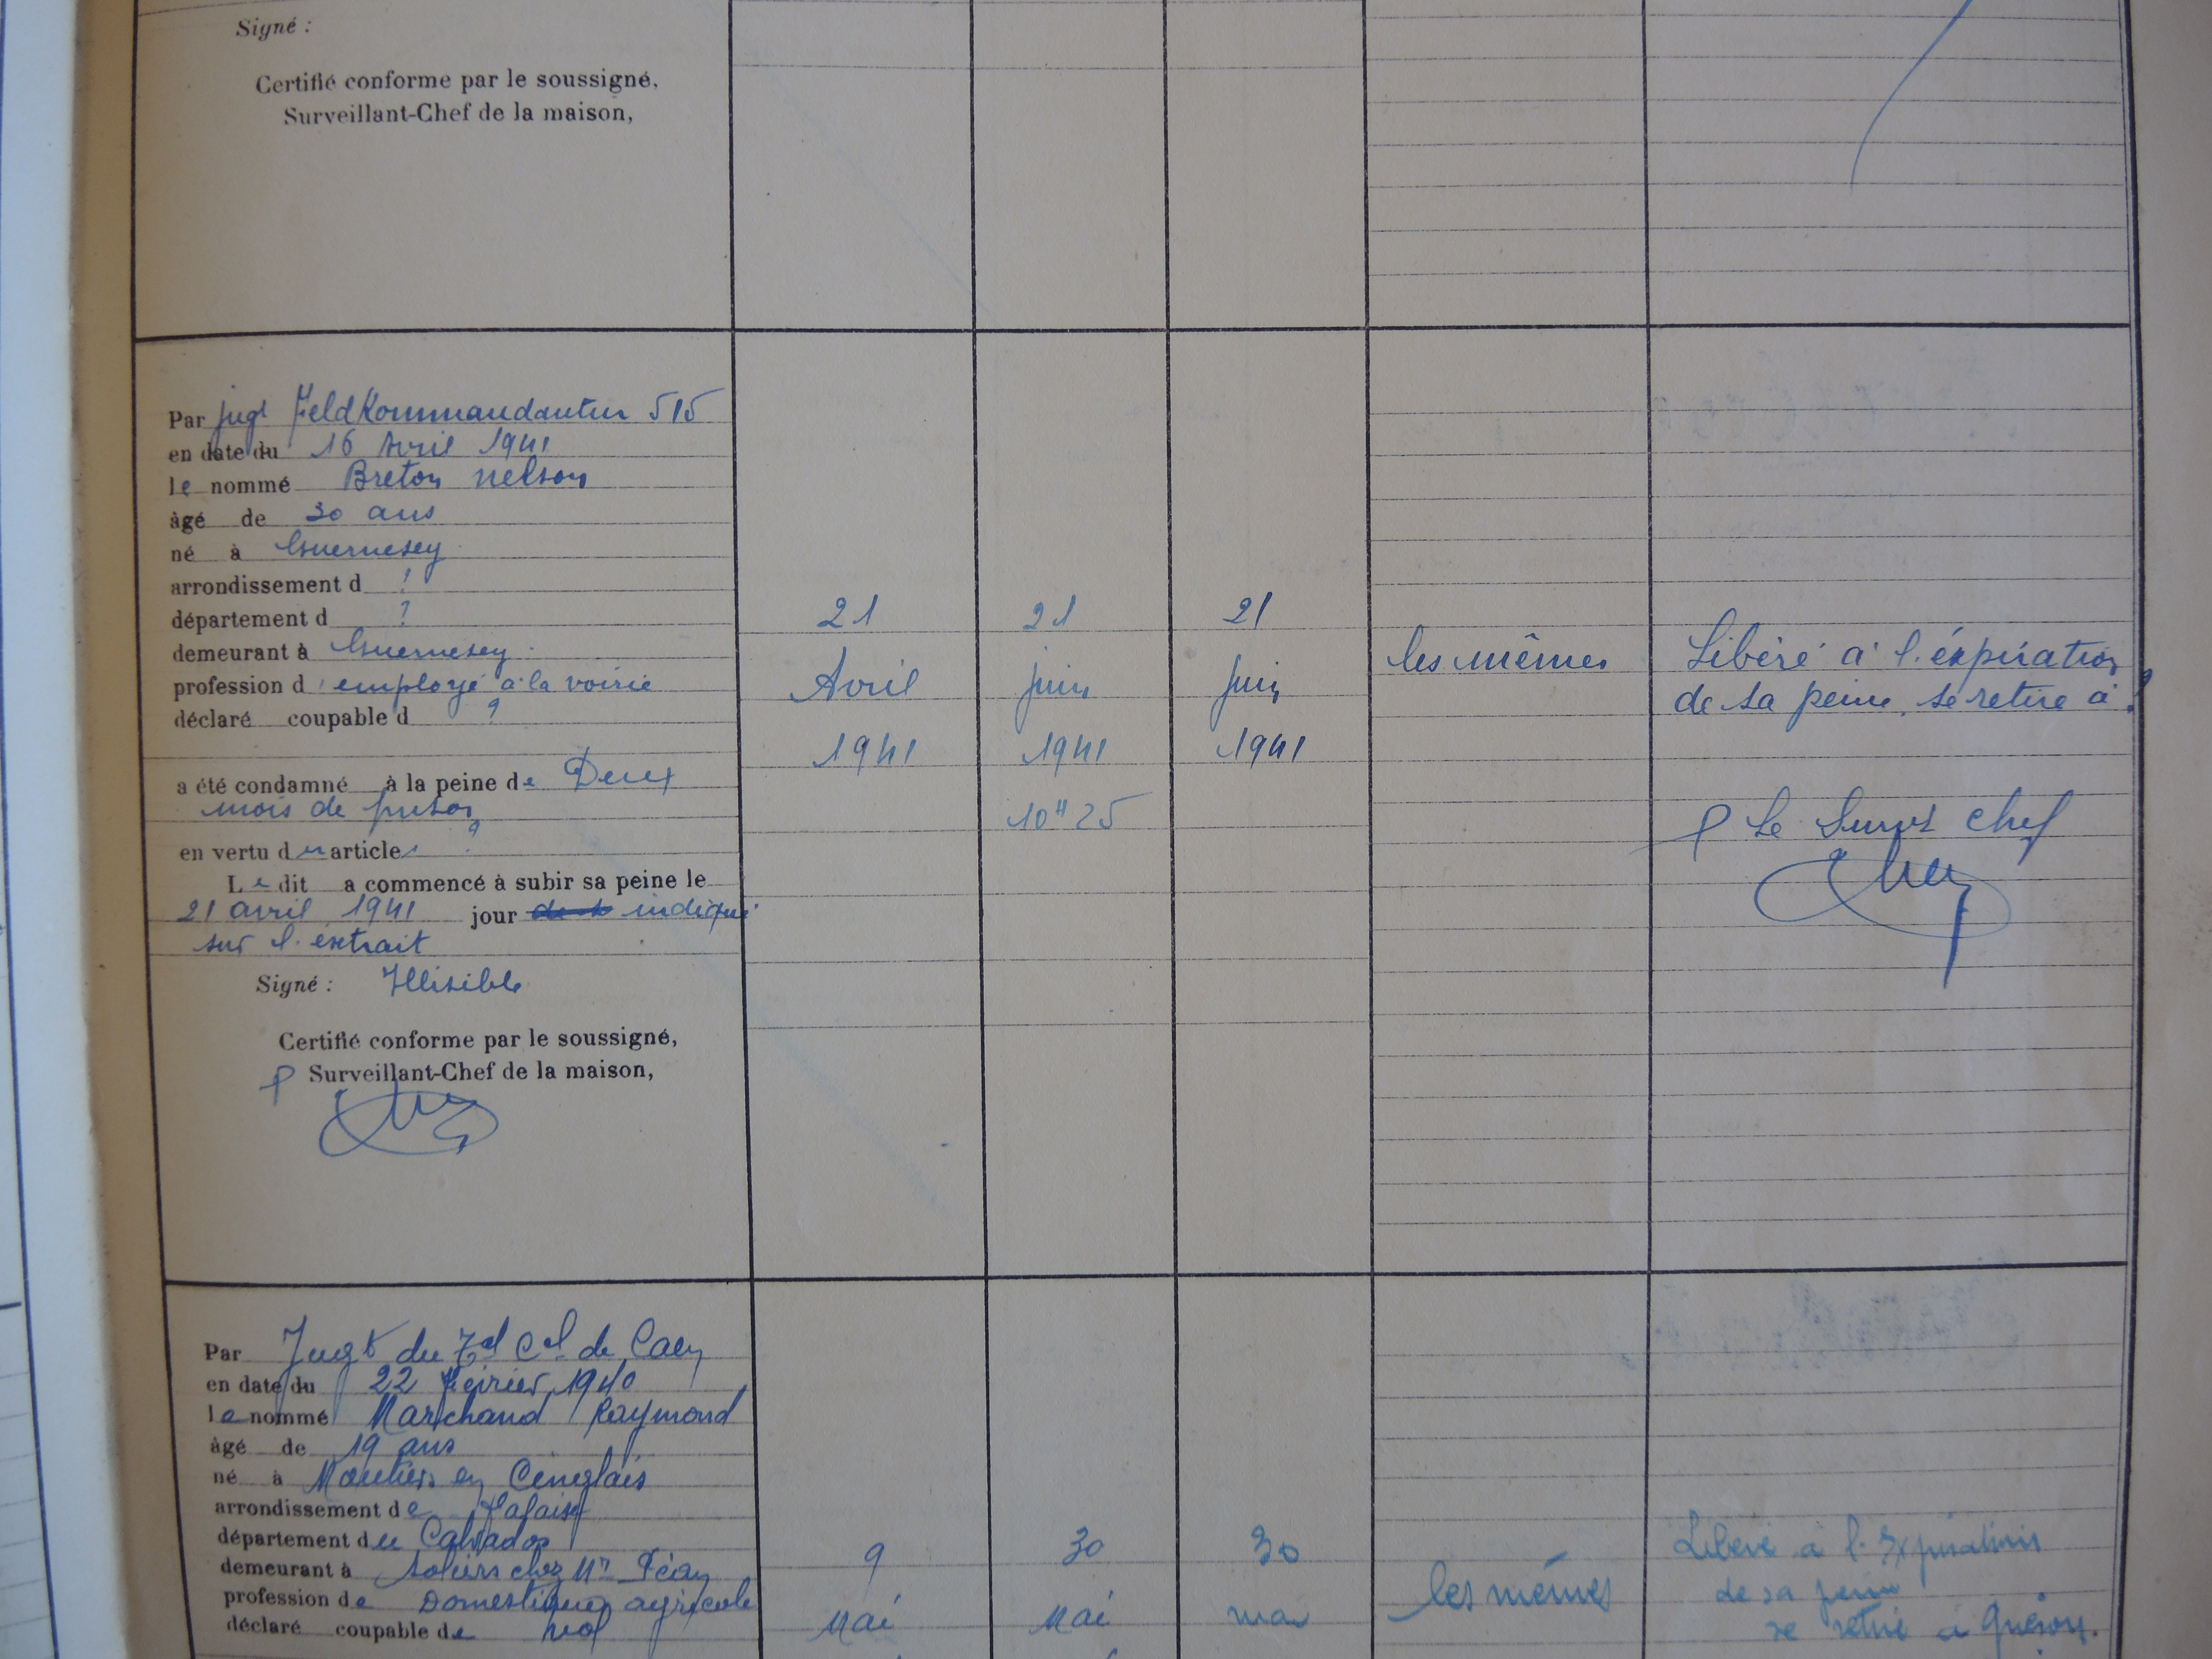 Signé :
Certifié conforme par le soussigné,
Surveillant-Chef de la maison,
Par jugt Feldkommandantur 515
en date du 16 Avril 1941
le nommé Breton Nelson
âgé de 30 ans
né à Guernesey
arrondissement d ?
département d ?
demeurant à Guernesey
profession d'employé à la voirie
déclaré coupable d ?
a été condamné à la peine de Deux
mois de prison
en vertu des articles ?
Le dit a commencé à subir sa peine le
21 avril 1941 jour indiqué
sur l'extrait
Signé : Illisible
Certifié conforme par le soussigné,
P Surveillant-Chef de la maison,
21
Avril
1941
21
juin
1941
10H25
21
juin
1941
les mêmes
Libéré à l'expiration
de sa peine, se retire à ?
P Le Survt Chef
Par Jugt du Tal Cel de Caen
en date du 22 Février 1940
le nommé Marchand Raymond
âgé de 19 ans
né à Moutiers en Cinglais
arrondissement de Falaise
département du Calvados
demeurant à Soliers chez Mr
profession de Domestique agricole
déclaré coupable de vol
9
Mai
30
Mai
30
mai
les mêmes
Libéré à l'Expiration
de sa peine
se retire à